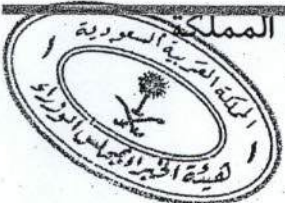 المملكة
المملكة العربية السعودية
هيئة الخبراء بمجلس الوزراء